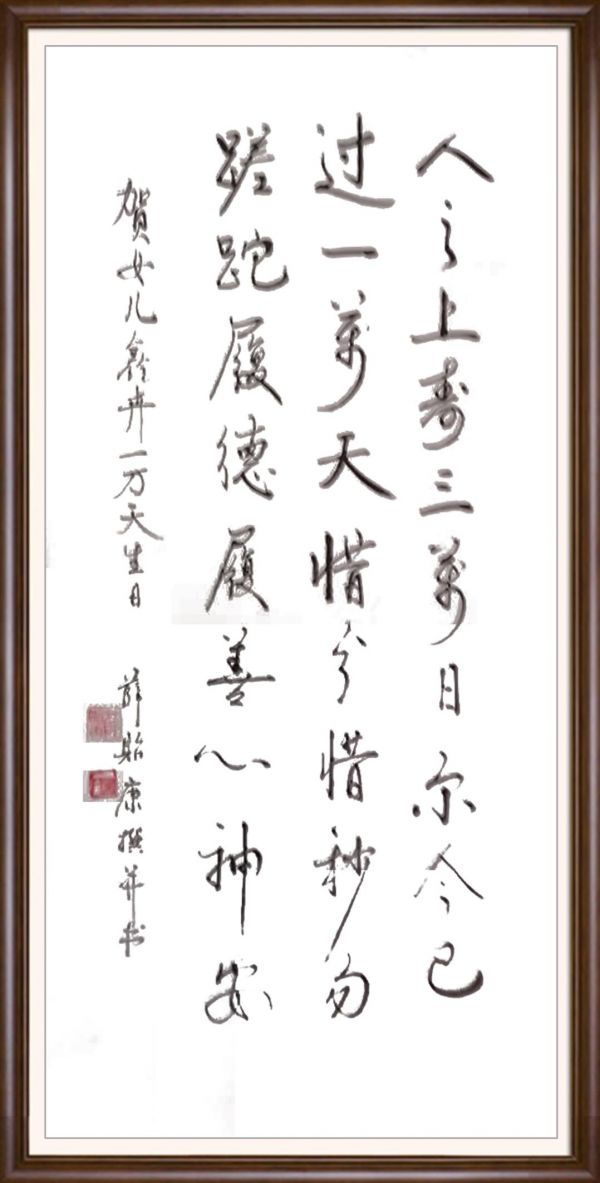 人之上寿三萬日尔今已
过一萬天惜分惜秒勿
蹉跎履德履善心神安
賀女儿卉一万天生日 薛贻康撰并书